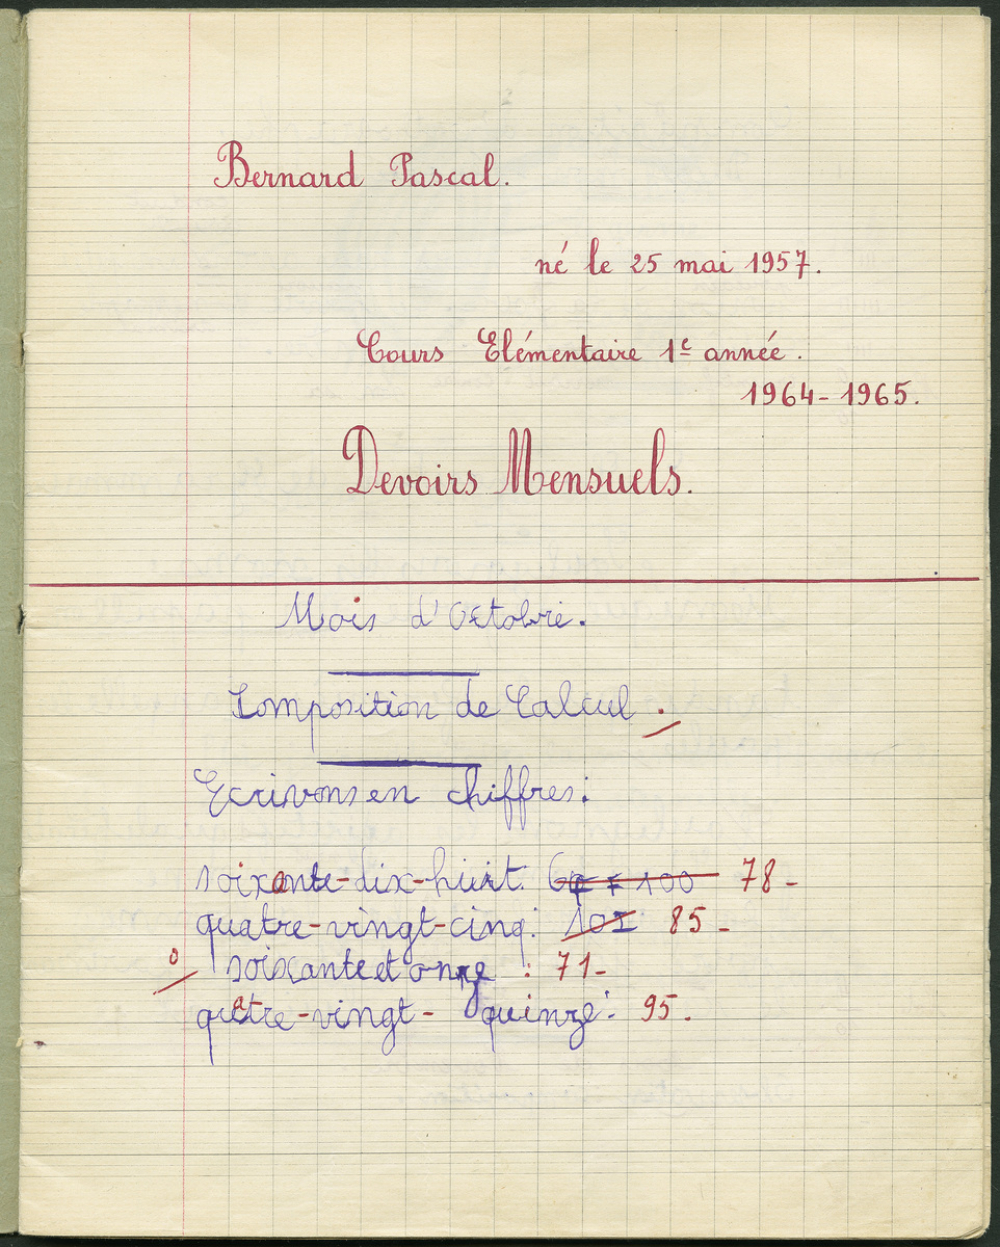 Bernard Pascal.
né le 25 mai 1957.
Cours Elémentaire 1e année.
1964-1965.
Devoirs Mensuels.
Mois d'Octobre.
Composition de Calcul.
Ecrivons en chiffres:
soixante-dix-huit. 78-
quatre-vingt-cinq: 101 85-
0
soixante et onze : 71-
quatre-vingt- quinze: 95.